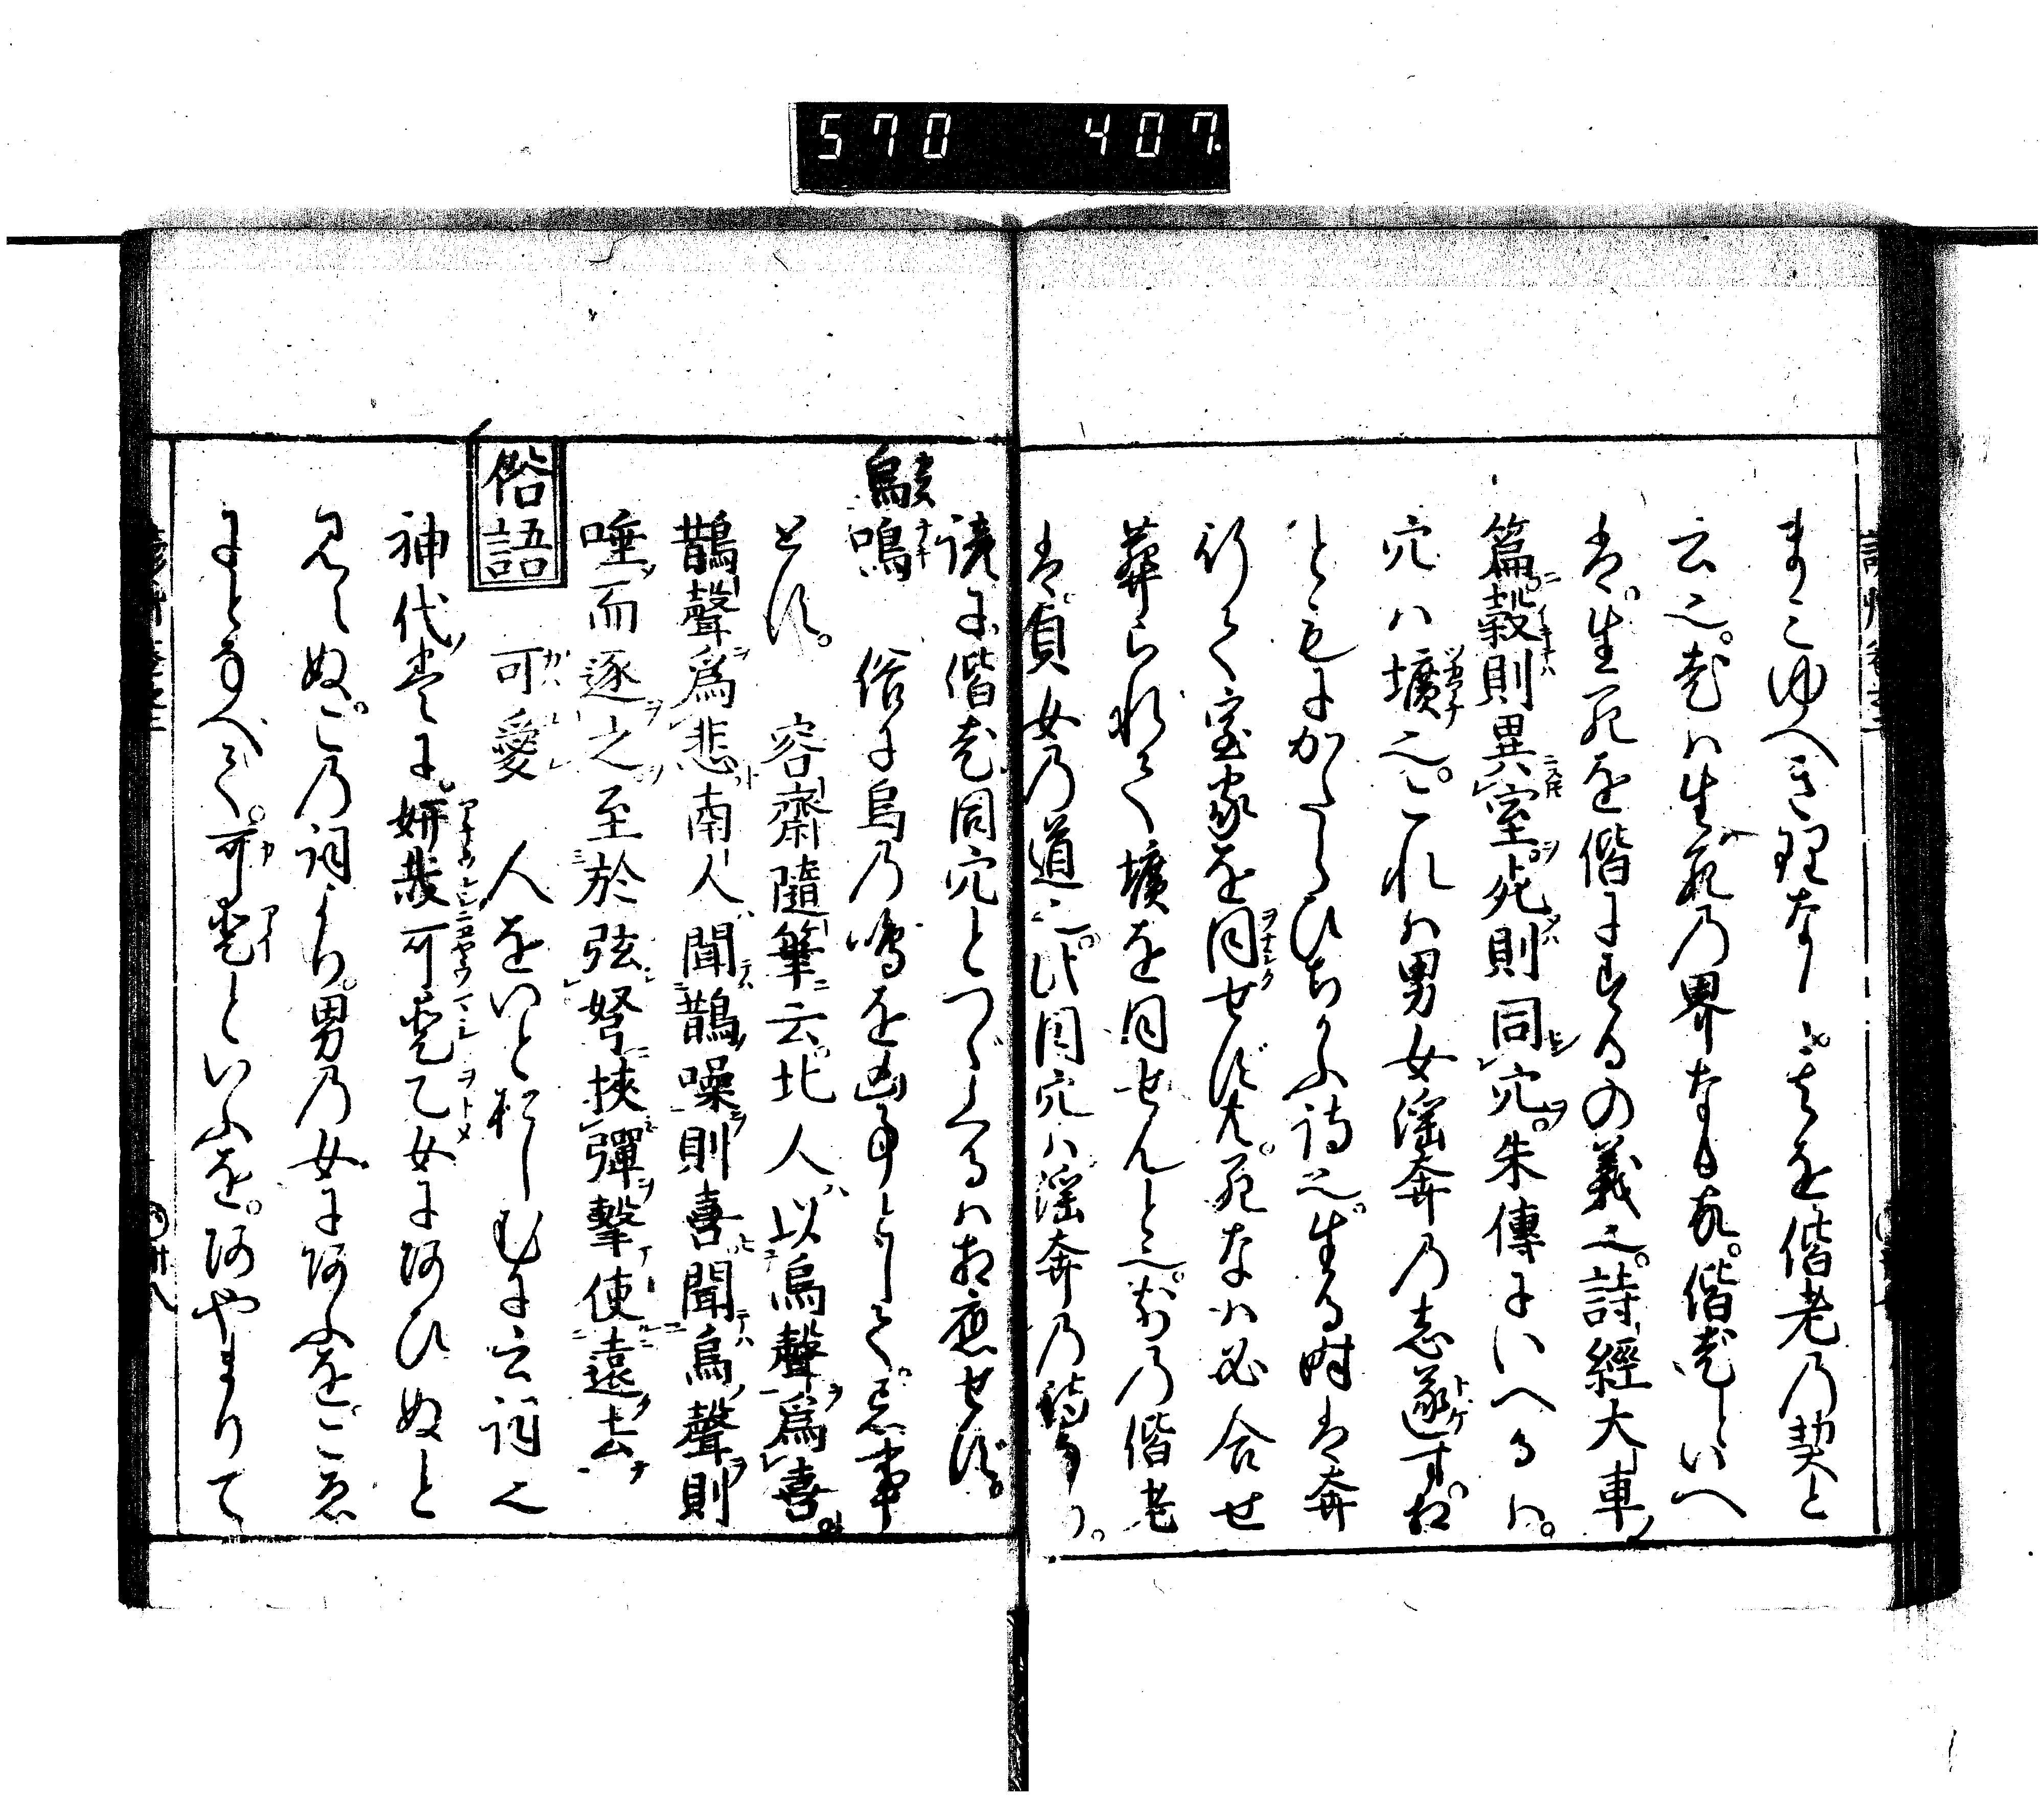 570 407.
まこゆへき理なし。是を偕老乃契と
云之。老ハ生死乃界なる故。偕老といへ
は。生死を偕にするの義之。詩經大車
篇。穀則異室。死則同穴。朱傳にいへるハ。
穴ハ壙之。これハ男女淫奔乃志遂す。相
ともにかたらひちかふ詩之。生る時は奔
行て室家を同せすとも。死なハ必合せ
葬られて壙を同せんと之。前乃偕老
は貞女乃道之。此同穴ハ淫奔乃詩なり。
讀に偕老同穴とつゝくるハ相應せず。
烏鳴 俗に烏乃鳴を凶事として。忌事
とす。 容齋隨筆云。北人以烏聲爲喜。
鵲聲爲悲南人聞鵲噪則喜聞烏聲則
唾而逐之至於弦弩挾彈擊使遠去
俗語 可愛 人をいとおしむに云詞之
神代巻に。妍哉可愛乙女にあひぬと
見えぬ。この詞より。男乃女にあふをこゑ
にとなへて。可愛といふを。あやまりて